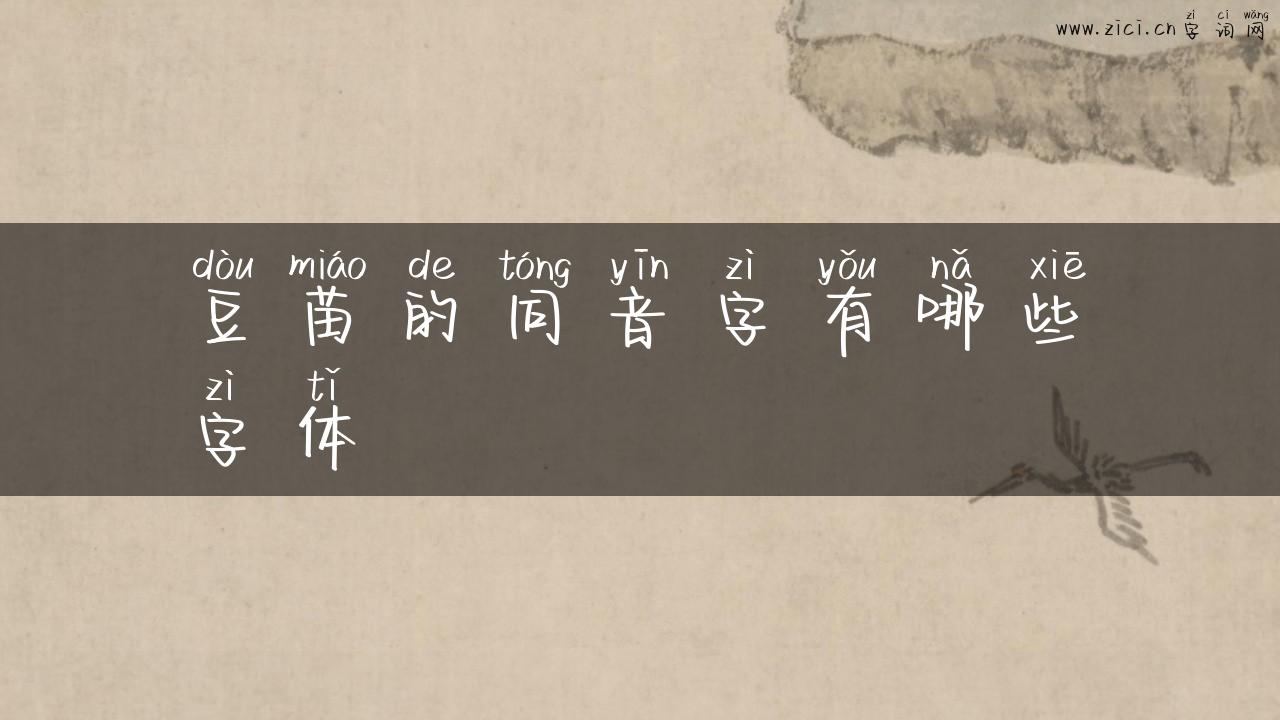 zì cí wǎng
www.zici.cn 字词网
dòu miáo de tóng yīn zì yǒu nǎ xiē
豆苗的同音字有哪些
zì tǐ
字体